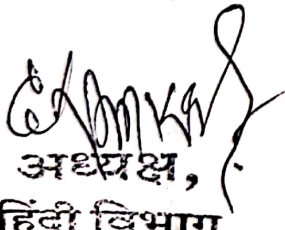 अध्यक्ष,
हिंदी विभाग